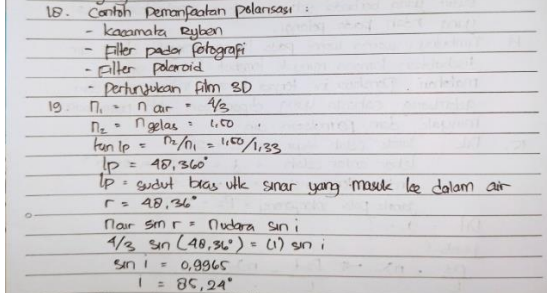 18. Contoh Pemanfaatan Polarisasi :
- Kacamata Ryben
- Filter pada fotografi
- Filter polaroid
- Pertunjukan film 3D
19. n₁ = n air = 4/3
n₂ = n gelas = 1,50
tan Ip = n₂/n₁ = 1,50/1,33
Ip = 48,360°
Ip = sudut bias utk sinar yang masuk ke dalam air
r = 48,36°
nair sin r = nudara sin i
4/3 sin (48,36°) = (1) sin i
sin i = 0,9965
i = 85,24°